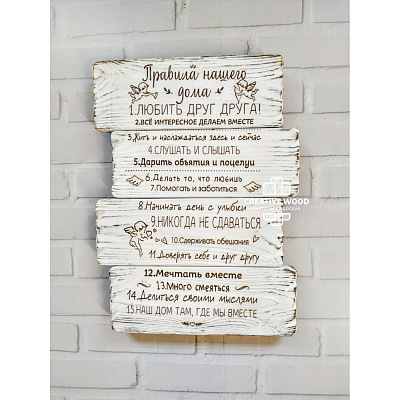 Правила нашего
дома
1.ЛЮБИТЬ ДРУГ ДРУГА!
2.ВСЁ ИНТЕРЕСНОЕ ДЕЛАЕМ ВМЕСТЕ
3.Жить и наслаждаться здесь и сейчас
4.СЛУШАТЬ И СЛЫШАТЬ
5.Дарить объятия и поцелуи
6.Делать то, что любишь
7.Помогать и заботиться
8.Начинать день с улыбки
CREATIVE WOOD
9.НИКОГДА НЕ СДАВАТЬСЯ
10.Сдерживать обещания
11.Доверять себе и друг другу
12.Мечтать вместе
13.Много смеяться
14.Делиться своими мыслями
15.НАШ ДОМ ТАМ, ГДЕ МЫ ВМЕСТЕ